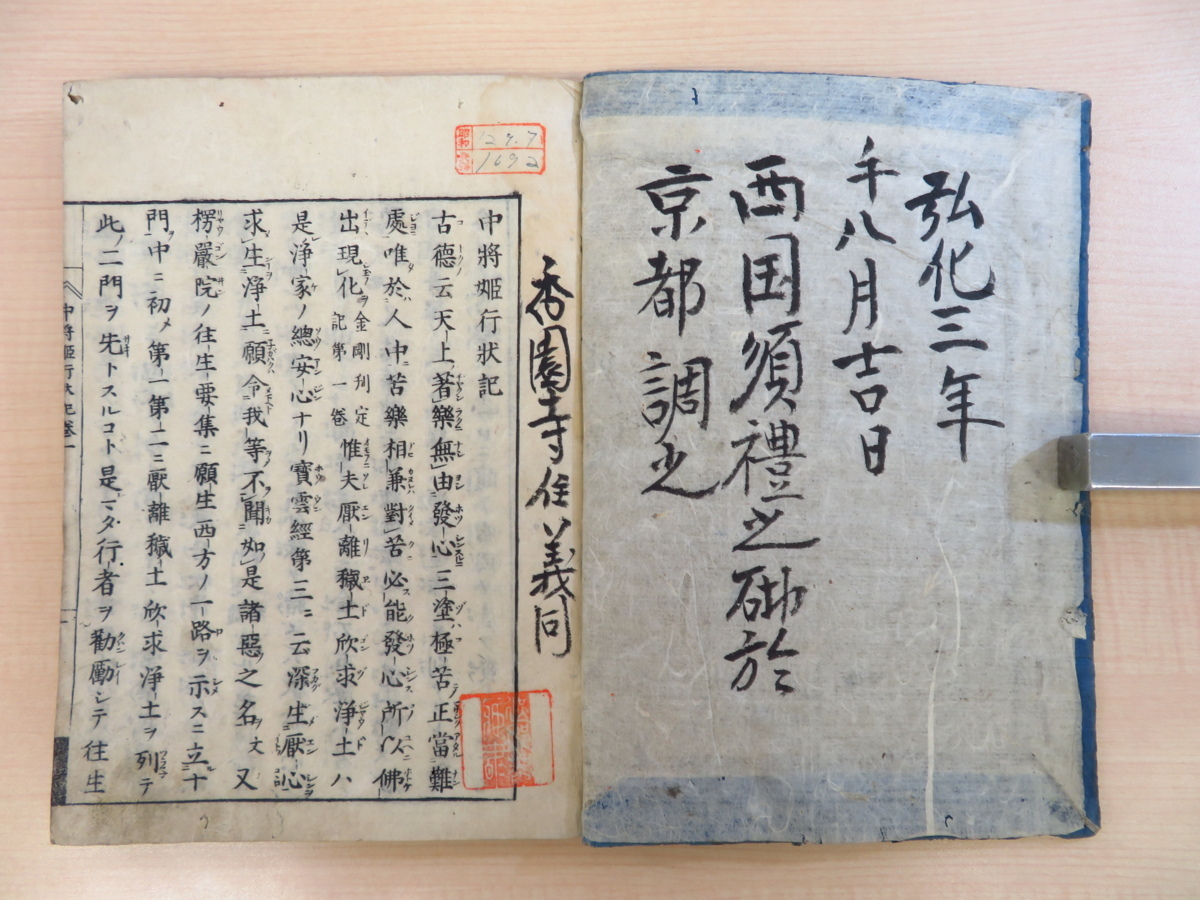 弘化三年
午八月吉日
西国須禮之砌於
京都調之
香園寺住義同
12 9.7
1692
中將姬行狀記
古德云天上著樂無由發心三塗極苦正當難
處唯於人中苦樂相兼對苦必能發心所以佛
出現化金剛刊定記第一卷惟夫厭離穢土欣求淨土ハ
是淨家ノ總安心ナリ寶雲經第三ニ云深生厭心
求生淨土願令我等不聞如是諸惡之名文又
楞嚴院ノ往生要集ニ願生西方ノ一路ヲ示スニ立十
門中ニ初メ第一第二ニ厭離穢土欣求淨土ヲ列テ
此ノ二門ヲ先トスルコト是マタ行者ヲ勸勵シテ往生
中將姬行狀記卷一